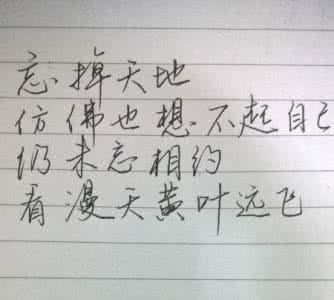 忘掉天地
仿佛也想不起自己
仍未忘相约
看漫天黄叶远飞